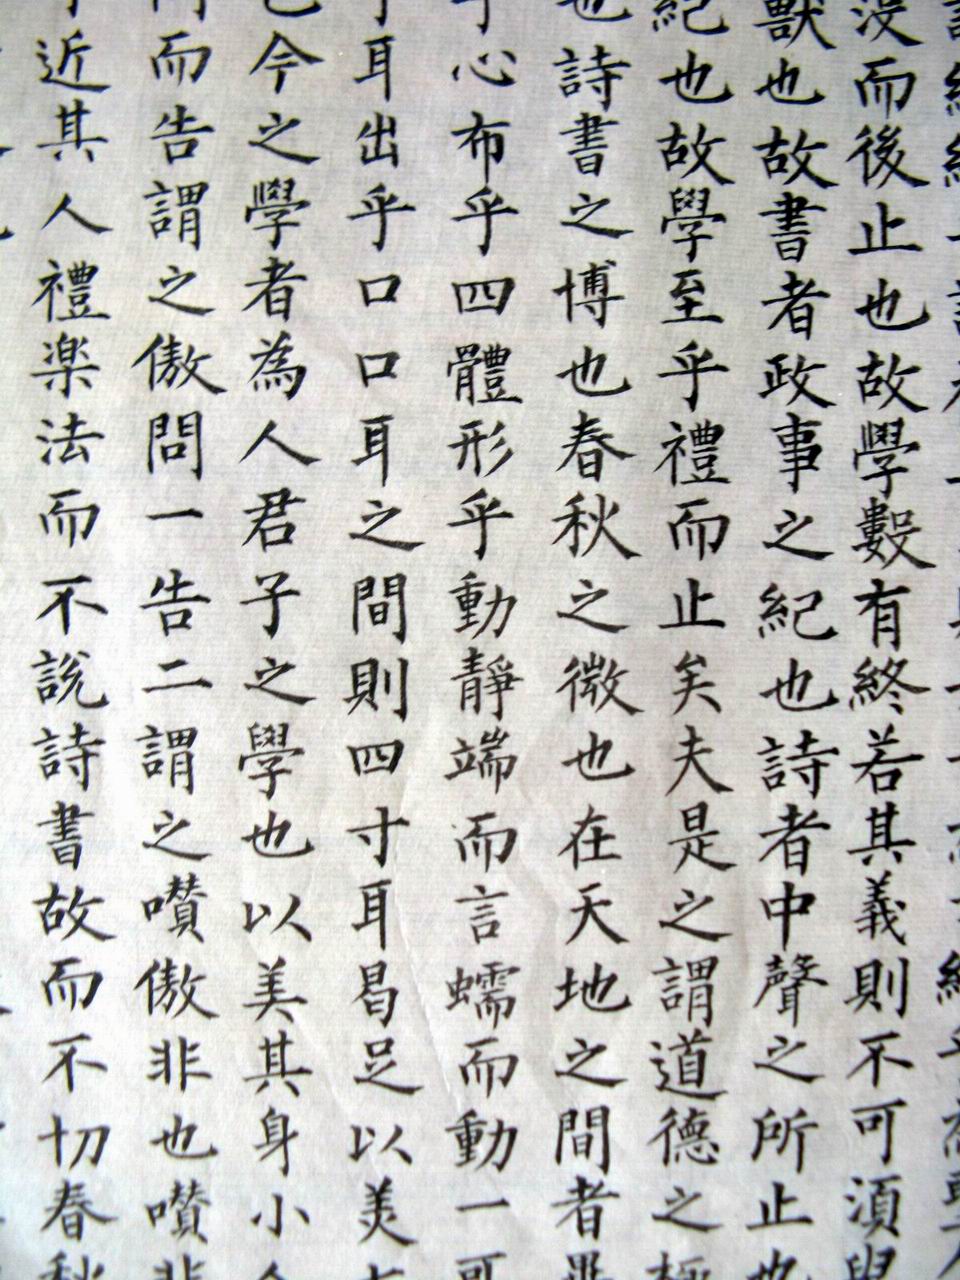 沒而後止也故學數有終若其義則不可須
獸也故書者政事之紀也詩者中聲之所止也
紀也故學至乎禮而止矣夫是之謂道德之極
也詩書之博也春秋之微也在天地之間者畢
乎心布乎四體形乎動靜端而言蠕而動一可
耳出乎口口耳之間則四寸耳曷足以美七
今之學者為人君子之學也以美其身小人
而告謂之傲問一告二謂之囋傲非也囋非
近其人禮楽法而不說詩書故而不切春秋